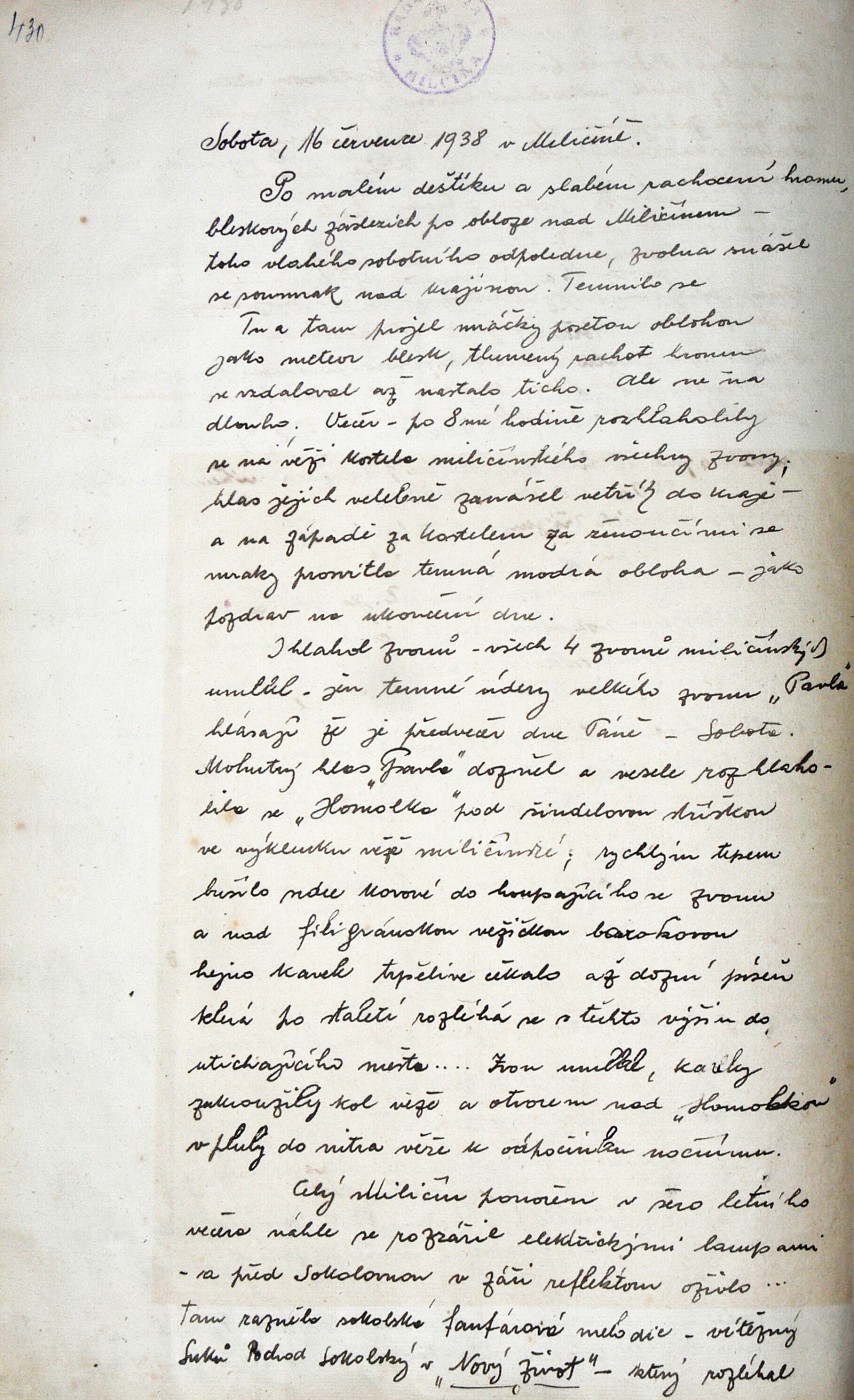 430
Sobota, 16 července 1938 v Miličíně.
Po malém deštíku a slabém rachocení hromu,
bleskových zášlezích po obloze nad Miličínem –
toho vlahého sobotního odpoledne, zvolna snášel
se soumrak nad krajinou. Temnilo se
Tu a tam projel mráčky posetou oblohou
jako meteor blesk, tlumený rachot hromu
se vzdaloval až nastalo ticho. Ale ne na
dlouho. Večer – po 8mé hodině rozhlaholily
se na věži kostela miličínského všechny zvony;
hlas jejich velebně zanášel vetřík do kraje –
a na západě za kostelem za
mraky prosvitla temná modrá obloha – jako
pozdrav na ukončení dne.
I hlahol zvonů – všech 4 zvonů miličínských
umlkl – jen temné údery velkého zvonu „Pavla"
hlásají že je předvečer dne Páně – Sobota.
Mohutný hlas „Pavla" dozněl a vesele rozhlaho-
lila se „Homolka" pod šindelovou stříškou
ve výklenku věže miličínské; rychlým tepem
bušilo srdce kovové do houpajícího se zvonu
a nad filigránskou vežičkou barokovou
hejno kavek trpělive čekalo až dozní píseň
která po staletí rozléhá se s těchto výšin do
utichajícího města.... Zvon umlkl, kavky
zakroužily kol věže a otvorem nad „Homolkou"
vpluly do nitra věže k odpočinku nočnímu.
Celý Miličín ponořen v šero letního
večera náhle se rozzářil elektrickými lampami
– a před Sokolovnou v záři reflektoru ožilo ...
tam razněla sokolská fanfárová melodie – vítězný
Sukův Pochod Sokolský „v Nový život" – který rozléhal